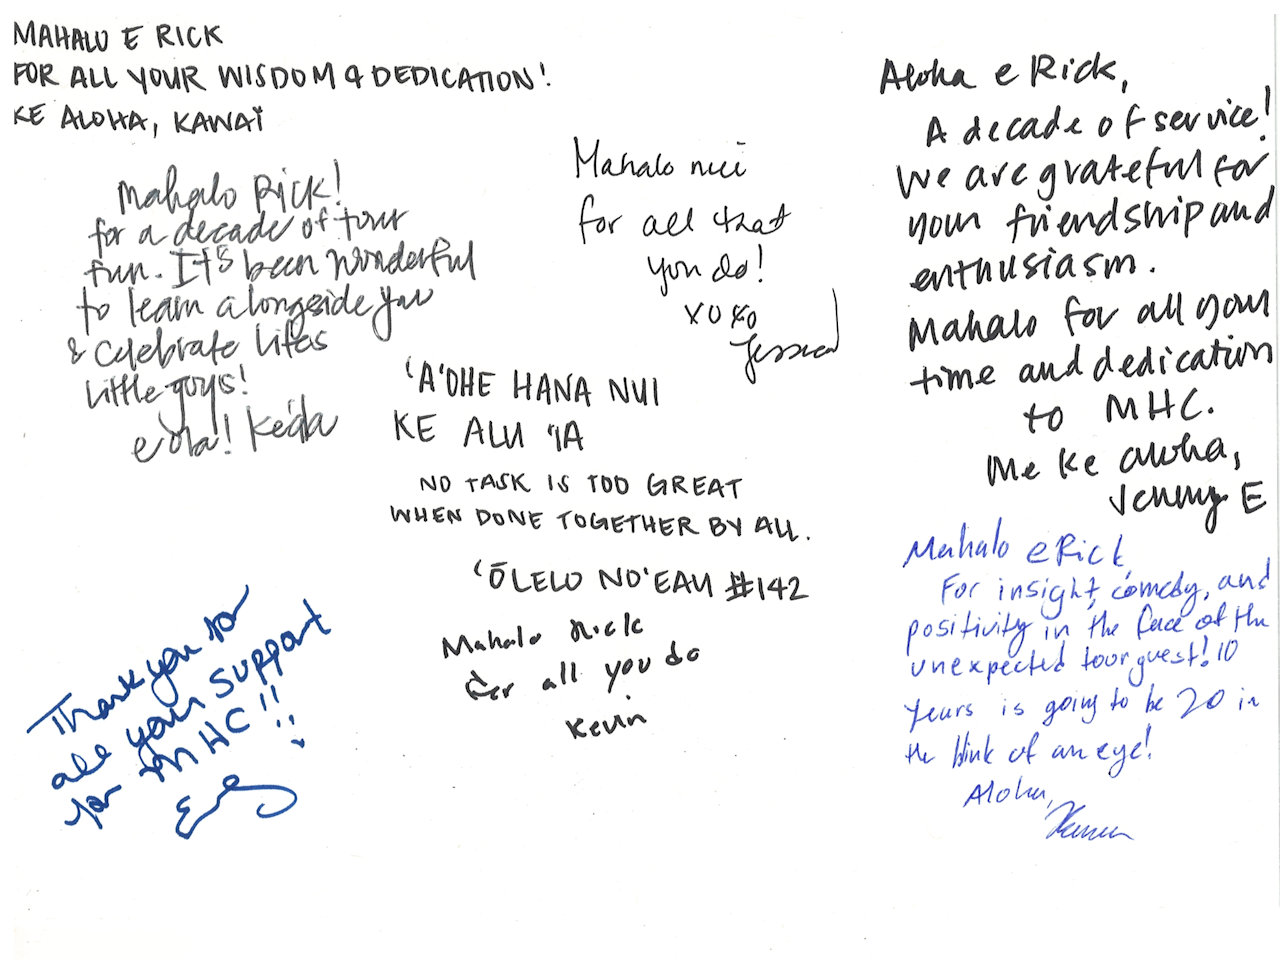 MAHALO E RICK
FOR ALL YOUR WISDOM & DEDICATION!
KE ALOHA, KAWAI
Mahalo Rick!
for a decade of tour
fun. It's been wonderful
to learn alongside you
& celebrate lifes
little guys!
e ola! Keola
Mahalo nui
for all that
you do!
XOXO
Jessica
'A'OHE HANA NUI
KE ALU 'IA
NO TASK IS TOO GREAT
WHEN DONE TOGETHER BY ALL.
'ŌLELO NO'EAU #142
Mahalo Rick
for all you do
Kevin
Thank you for
all your support
for MHC!!
Aloha e Rick,
A decade of service!
We are grateful for
your friendship and
enthusiasm.
Mahalo for all your
time and dedication
to MHC.
Me ke aloha,
Jenny E
Mahalo e Rick,
For insight, comedy, and
positivity in the face of the
unexpected tour guest! 10
years is going to be 20 in
the blink of an eye!
Aloha,